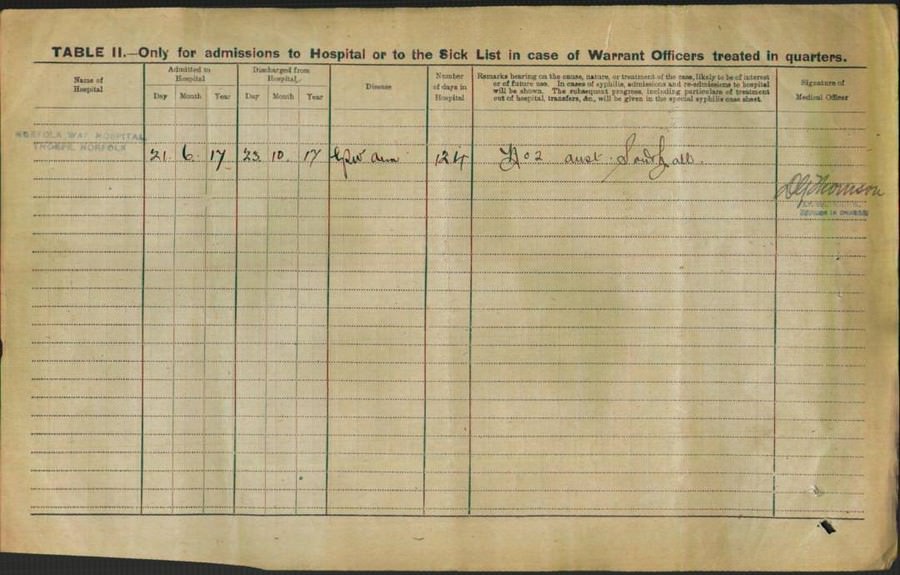 TABLE II.—Only for admissions to Hospital or to the Sick List in case of Warrant Officers treated in quarters.
Name of Hospital
Admitted to Hospital
Day Month Year
Discharged from Hospital.
Day Month Year
Disease
Number of days in Hospital
Remarks bearing on the cause, nature, or treatment of the case, likely to be of interest
or of future use. In cases of syphilis, admissions and re-admissions to hospital
will be shown. The subsequent progress, including particulars of treatment
out of hospital, transfers, &c., will be given in the special syphilis case sheet.
Signature of Medical Officer
NORFOLK WAR HOSPITAL
THORPE NORFOLK
21. 6. 17 23 10. 17 GSW arm 124 No 2 aust. Southall.
DGThomson